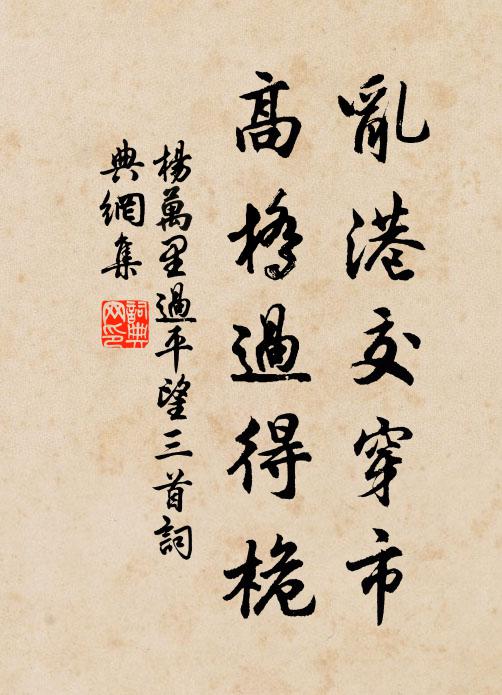 亂港交穿市
高橋過得桅
楊萬里過平望三首詞
典網集
詞典
网印